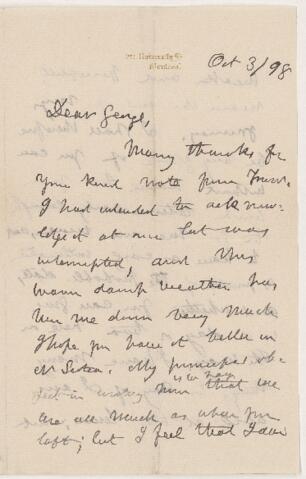 University St
Montreal
Oct 3/98
Dear George,
Many thanks for
your kind note from
I had intended to acknow-
ledge it at once but was
interrupted, and this
warm damp weather has
me down very much
I hope you have it better in
My principal ob-
ject in writing now is to say that we
are all much as when you
left; but I feel that I am